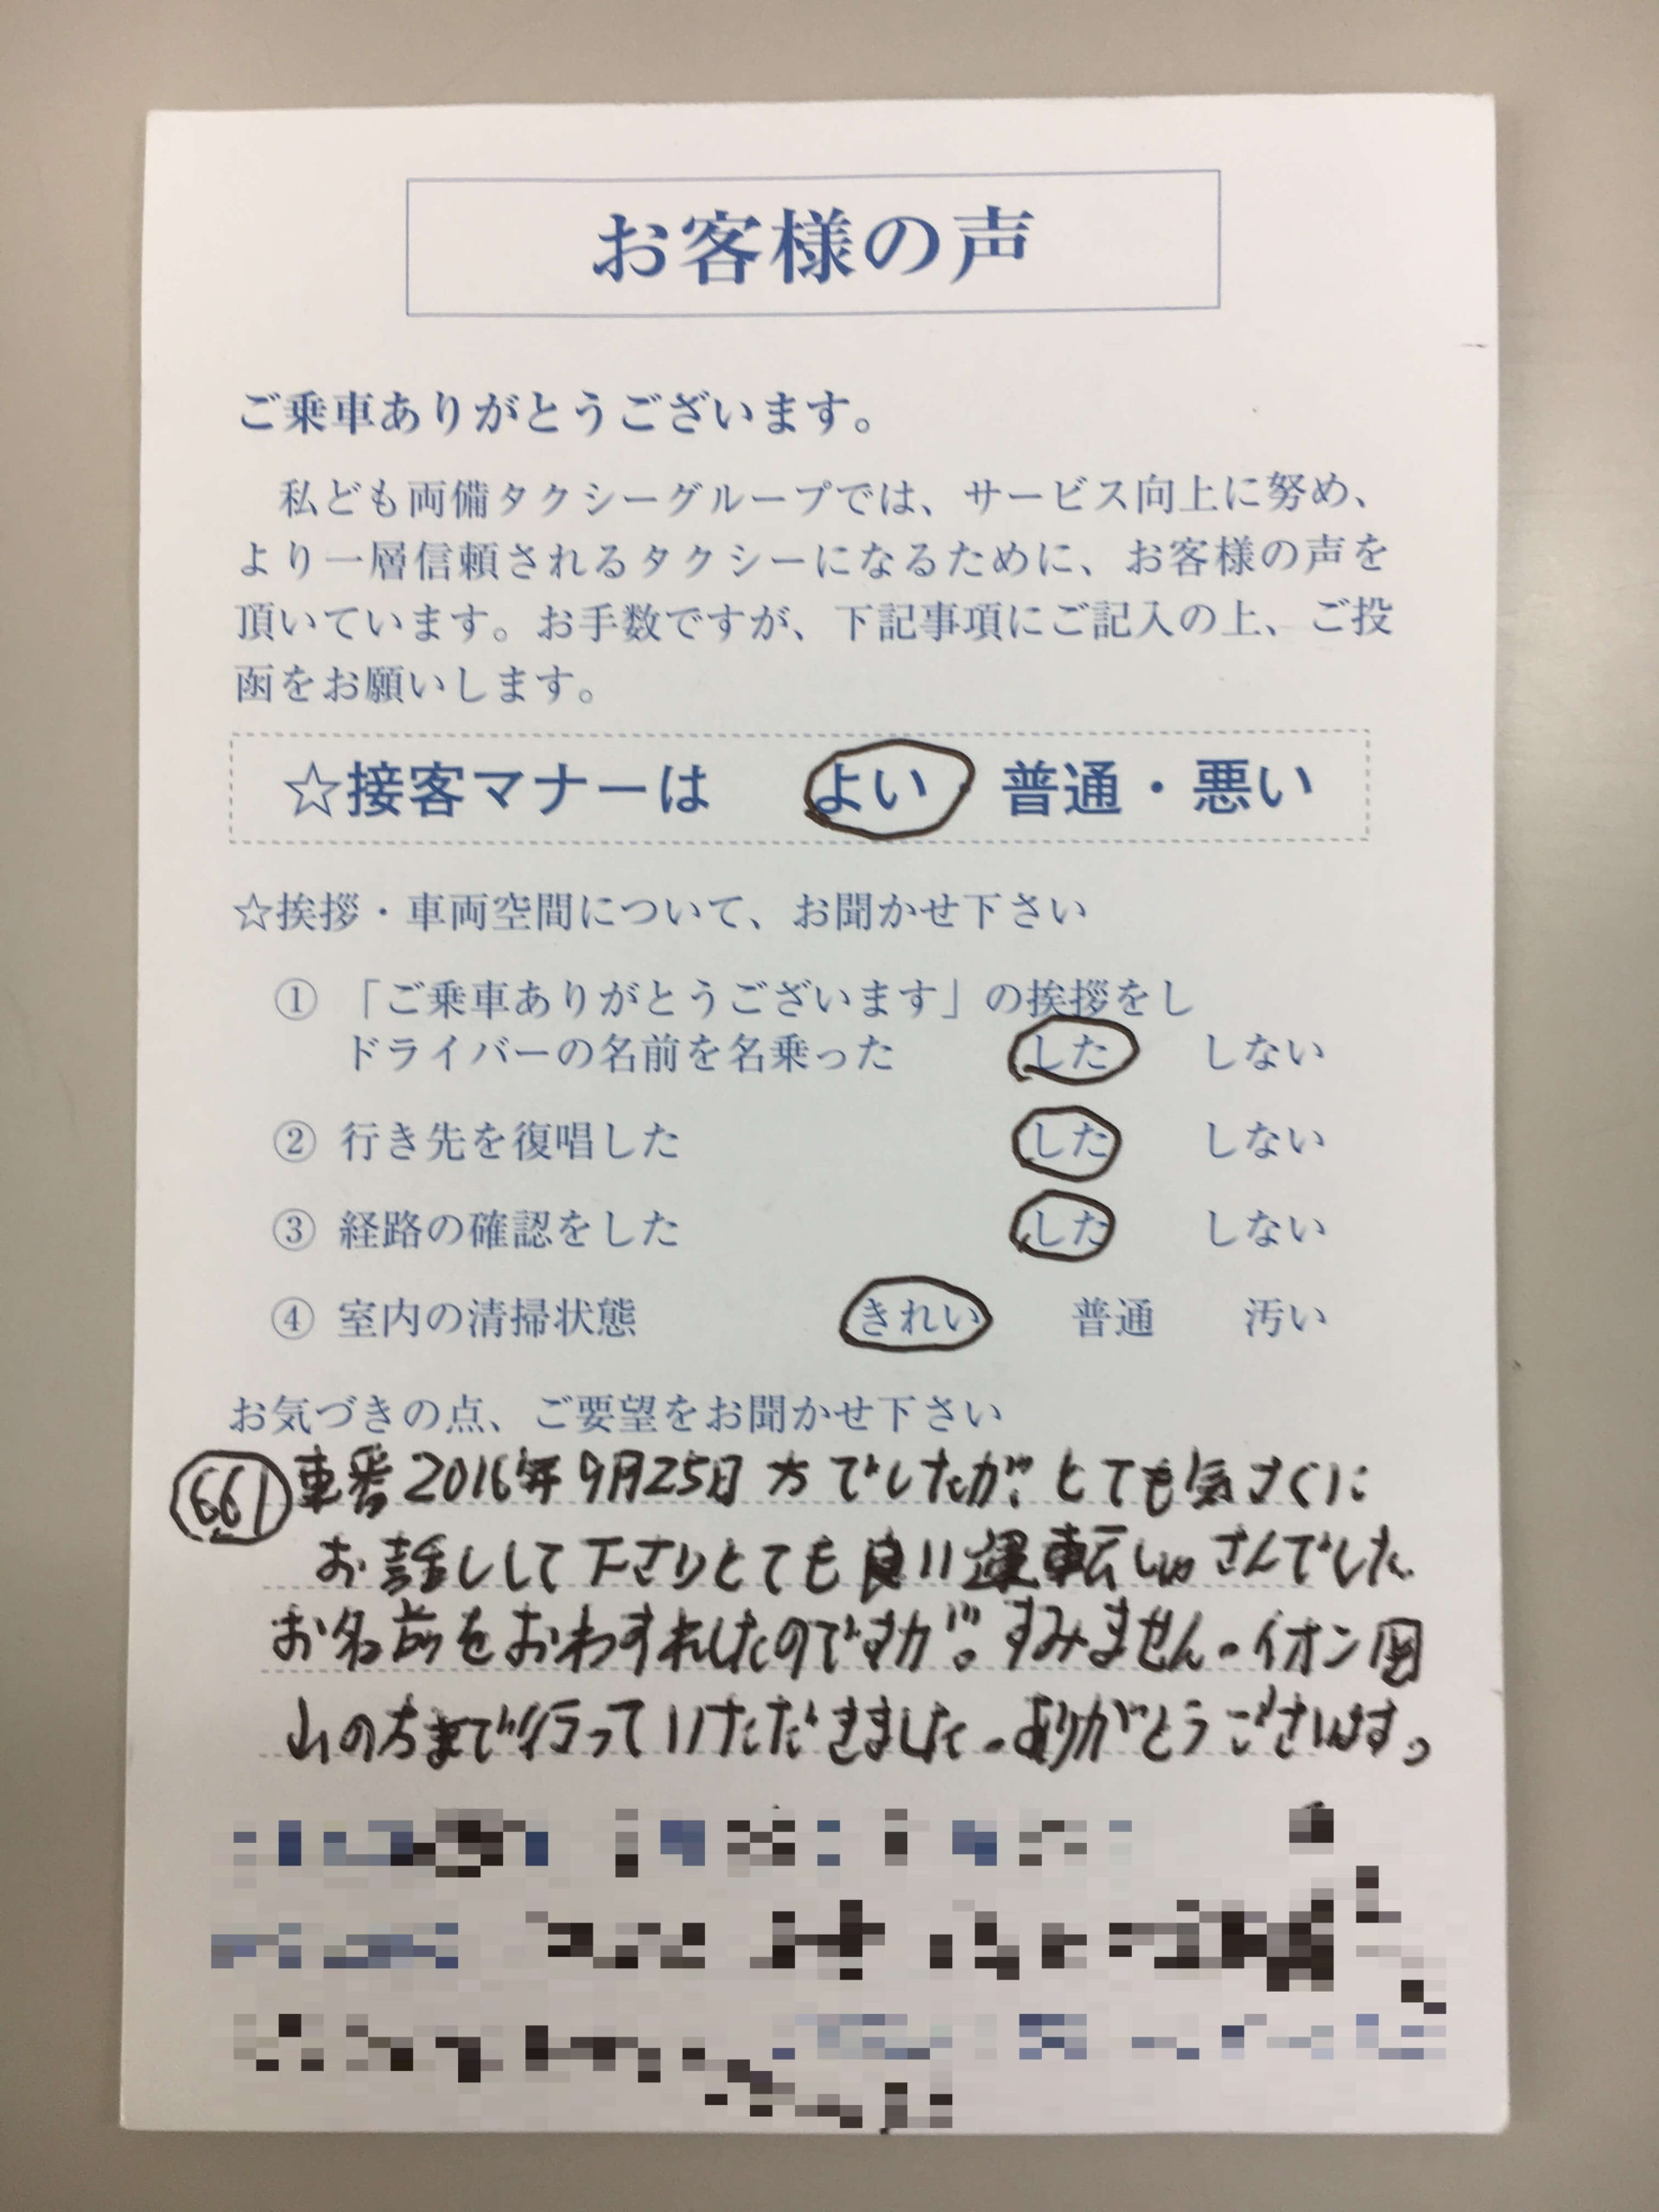 お客様の声
ご乗車ありがとうございます。
私ども両備タクシーグループでは、サービス向上に努め、
より一層信頼されるタクシーになるために、お客様の声を
頂いています。お手数ですが、下記事項にご記入の上、ご投
函をお願いします。
☆接客マナーは よい 普通・悪い
☆挨拶・車両空間について、お聞かせ下さい
① 「ご乗車ありがとうございます」の挨拶をし
ドライバーの名前を名乗った した しない
② 行き先を復唱した した しない
③ 経路の確認をした した しない
④ 室内の清掃状態 きれい 普通 汚い
お気づきの点、ご要望をお聞かせ下さい
661 車番 2016年9月25日 方でしたが、とても気さくに
お話しして下さりとても良い運転しゅさんでした
お名前をおわすれしたのですが。すみません。イオン岡
山の方まで行っていただきました。ありがとうございます。